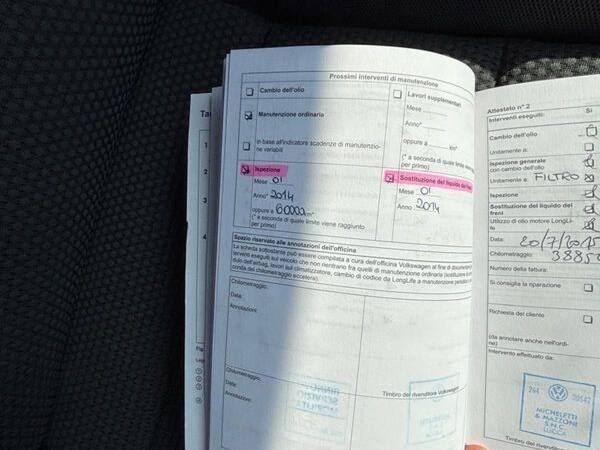 Prossimi interventi di manutenzione
Cambio dell'olio
Manutenzione ordinaria
in base all'indicatore scadenze di manutenzio-
ne variabili
Ispezione
Mese 01
Anno* 2014
oppure a 60000 km*
(* a seconda di quale limite viene raggiunto
per primo)
Lavori supplementari
Mese
Anno*
oppure a km*
(* a seconda di quale limite
per primo)
Sostituzione del liquido dei freni
Mese 01
Anno 2014
Spazio riservato alle annotazioni dell'officina
La scheda sottostante può essere compilata a cura dell'officina Volkswagen al fine di documentare
terventi eseguiti sul veicolo che non rientrano fra quelli di manutenzione ordinaria (sostituzione
dulo dell'airbag, lavori sul climatizzatore, cambio di codice da LongLife a manutenzione
conda del chilometraggio eccetera).
Chilometraggio:
Data:
Annotazioni:
Chilometraggio:
Data:
Annotazioni:
Timbro del rivenditore Volkswagen
Attestato n° 2
Interventi eseguiti: Sì
Cambio dell'olio
Unitamente a:
Ispezione generale
con cambio dell'olio
Unitamente a: FILTRO
Ispezione
Sostituzione del liquido dei
freni
Utilizzo di olio motore LongLi-
fe
Data: 20/7/2015
Chilometraggio: 3885
Numero della fattura:
Si consiglia la riparazione
Richiesta del cliente
(da annotare anche nell'ordi-
ne)
Intervento effettuato da:
264 30542
MICHELETTI
& MAZZONI
S.N.C.
LUCCA
Timbro del rivenditore